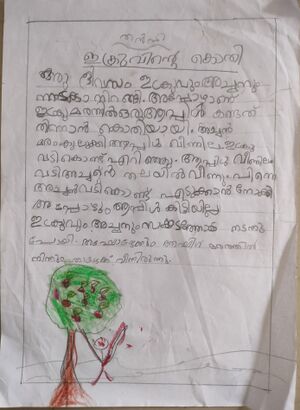 തൻഹ
ഇക്രുവിന്റെ കൊതി
ഒരു ദിവസം ഇക്രുവും അച്ഛനും
നടക്കാനിറങ്ങി അപ്പോഴാണ്
ഇക്രു മരത്തിൽ ഒരു ആപ്പിൾ കണ്ടത്
തിന്നാൻ കൊതിയായി. അച്ഛൻ
മരം കുലുക്കി ആപ്പിൾ വീണില്ല ഇക്രു
വടികൊണ്ട് എറിഞ്ഞു. ആപ്പിൾ വീണില്ല
വടി അച്ഛന്റെ തലയിൽ വീണു. പിന്നെ
അച്ഛൻ വടികൊണ്ട് എടുക്കാൻ നോക്കി
അപ്പോഴും ആപ്പിൾ കിട്ടിയില്ല
ഇക്രുവും അച്ഛനും സങ്കടത്തോടെ നടന്നു
പോയി. അപ്പോഴേക്കും ആപ്പിൾ മരത്തിൽ
നിന്നും താഴേക്ക് വീണിരുന്നു.